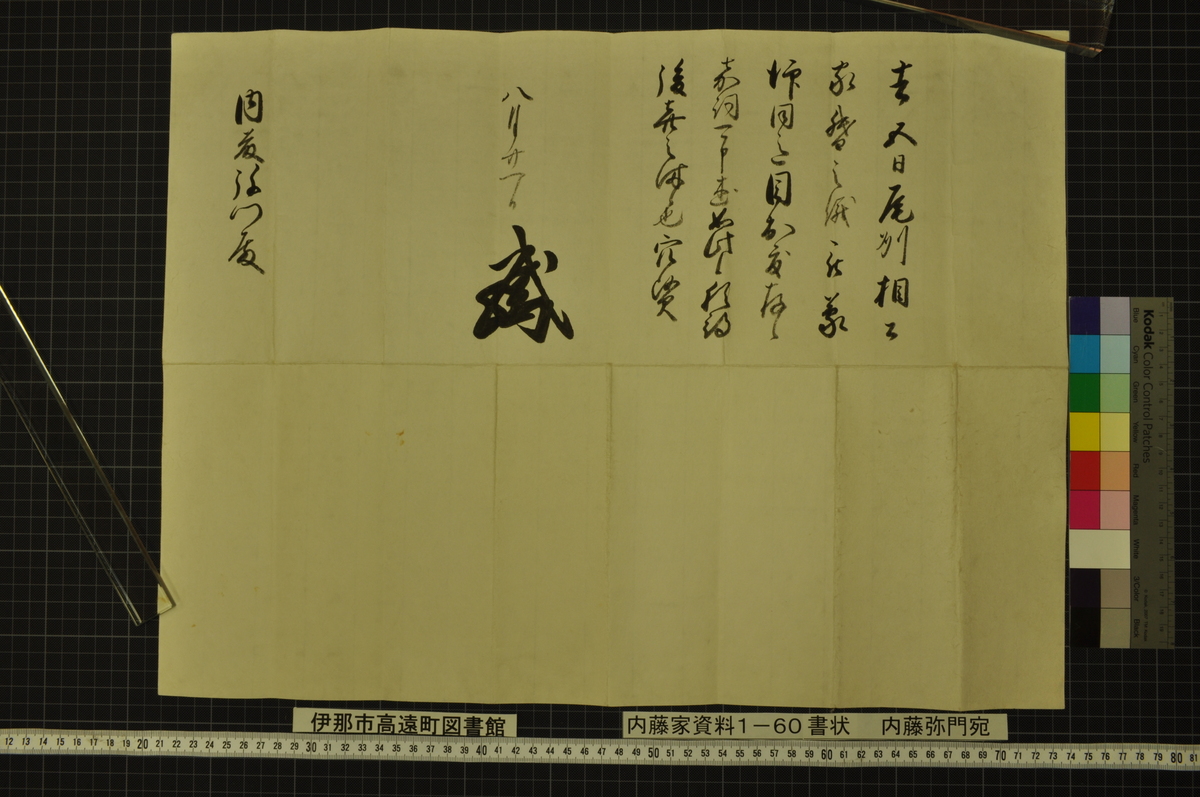 去五日尾州相公
家督之儀被蒙
仰 目出度存候
詞一章述如此候猶得
後喜之時也穴賢
八月廿一日
内藤弥門殿
伊那市高遠町図書館
内藤家資料1－60 書状 内藤弥門宛
Kodak Color Control Patches
Blue Cyan Green Yellow Red Magenta White 3/Color Black